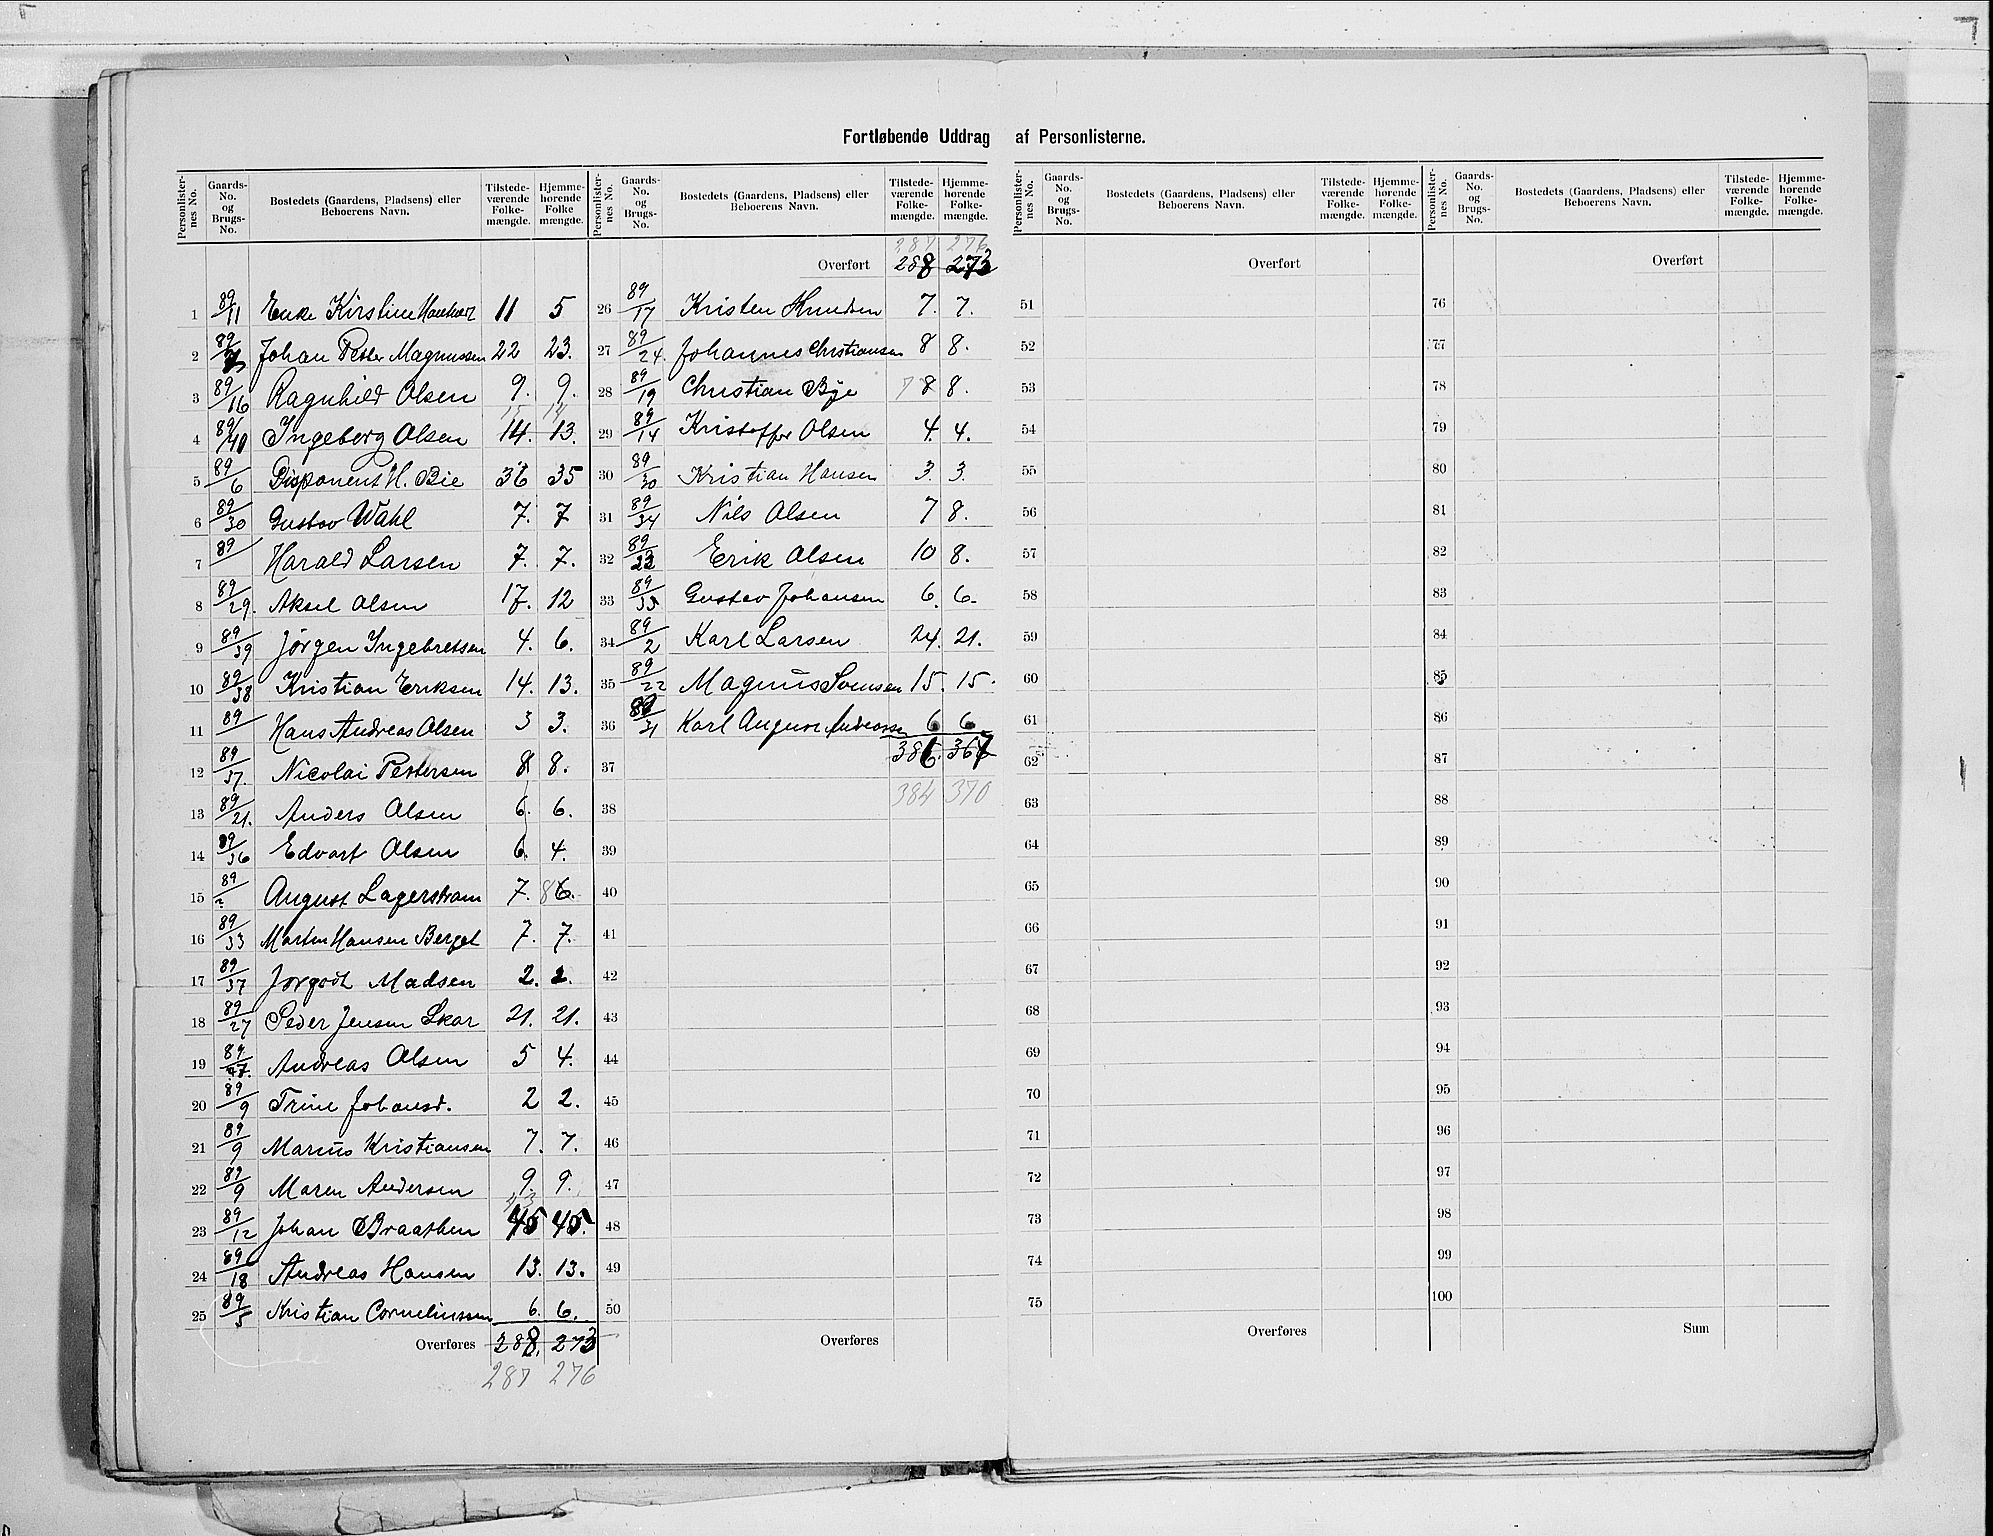 Fortløbende Uddrag af Personlisterne.
Personlister- nes No. | Gaards- No. og Brugs- No. | Bostedets (Gaardens, Pladsens) eller Beboerens Navn. | Tilstede- værende Folke- mængde. | Hjemme- hørende Folke mængde.
1 89/11 Enke Kirstine 11 5
2 89/ Johan Petter Magnussen 22 23.
3 89/16 Ragnhild Olsen 9. 9.
15 14
4 89/40 Ingeborg Olsen 14. 13.
5 89/6 Disponent H. Bie 36 35
6 89/30 Gustav Wahl 7. 7
7 89/ Harald Larsen 7. 7.
8 89/29. Aksel Olsen 17. 12
9 89/39 Jørgen Ingebretsen 4. 6.
10 89/38 Kristian Eriksen 14. 13.
11 89/ Hans Andreas Olsen 3 3.
12 89/37. Nicolai Pettersen 8 8.
13 89/21. Anders Olsen 6. 6.
14 89/36 Edvart Olsen 6. 4.
15 89/? August Lagerstrøm 7. 8 6.
16 89/33 Martin Hansen Berget 7. 7.
17 89/37 Madsen 2. 2.
18 89/27 Peder Jensen Skar 21. 21.
19 89/47. Andreas Olsen 5 4.
20 89/9 Trine Johansd. 2 2.
21 89/9 Marius Kristiansen 7. 7.
22 89/9 Maren Andersen 9. 9.
43
23 89/12 Johan Braathen 45 45.
24 89/18 Andreas Hansen 13. 13.
25 89/5 Kristian Corneliussen 6. 6.
Overføres 288. 273
287 276
Personlister- nes No. | Gaards- No. og Brugs- No. | Bostedets (Gaardens, Pladsens) eller Beboerens Navn. | Tilstede- værende Folke- mængde. | Hjemme- hørende Folke- mængde.
287 276
Overført 288 273
26 89/17 Kristen Knudsen 7. 7.
27 89/24. Johannes Christiansen 8 8.
28 89/19 Christian Bye 7 8 8.
29 89/14 Kristoffer Olsen 4. 4.
30 89/30 Kristian Hansen 3. 3.
31 89/34 Nils Olsen 7 8.
32 89/23 Erik Olsen 10 8.
33 89/35 Gustav Johansen 6. 6.
34 89/2 Karl Larsen 24. 21.
35 89/22 Magnus Svensen 15. 15.
36 89/31 Karl August Andreassen 6 6
37 386. 367
38 384 370
39
40
41
42
43
44
45
46
47
48
49
50
Overføres
Personlister- nes No. | Gaards- No. og Brugs- No. | Bostedets (Gaardens, Pladsens) eller Beboerens Navn. | Tilstede- værende Folke- mængde. | Hjemme- hørende Folke- mængde.
Overført
51
52
53
54
55
56
57
58
59
60
61
62
63
64
65
66
67
68
69
70
71
72
73
74
75
Overføres
Personlister- nes No. | Gaards- No. og Brugs- No. | Bostedets (Gaardens, Pladsens) eller Beboerens Navn. | Tilstede- værende Folke- mængde. | Hjemme- hørende Folke- mængde.
Overført
76
77
78
79
80
81
82
83
84
85
86
87
88
89
90
91
92
93
94
95
96
97
98
99
100
Sum